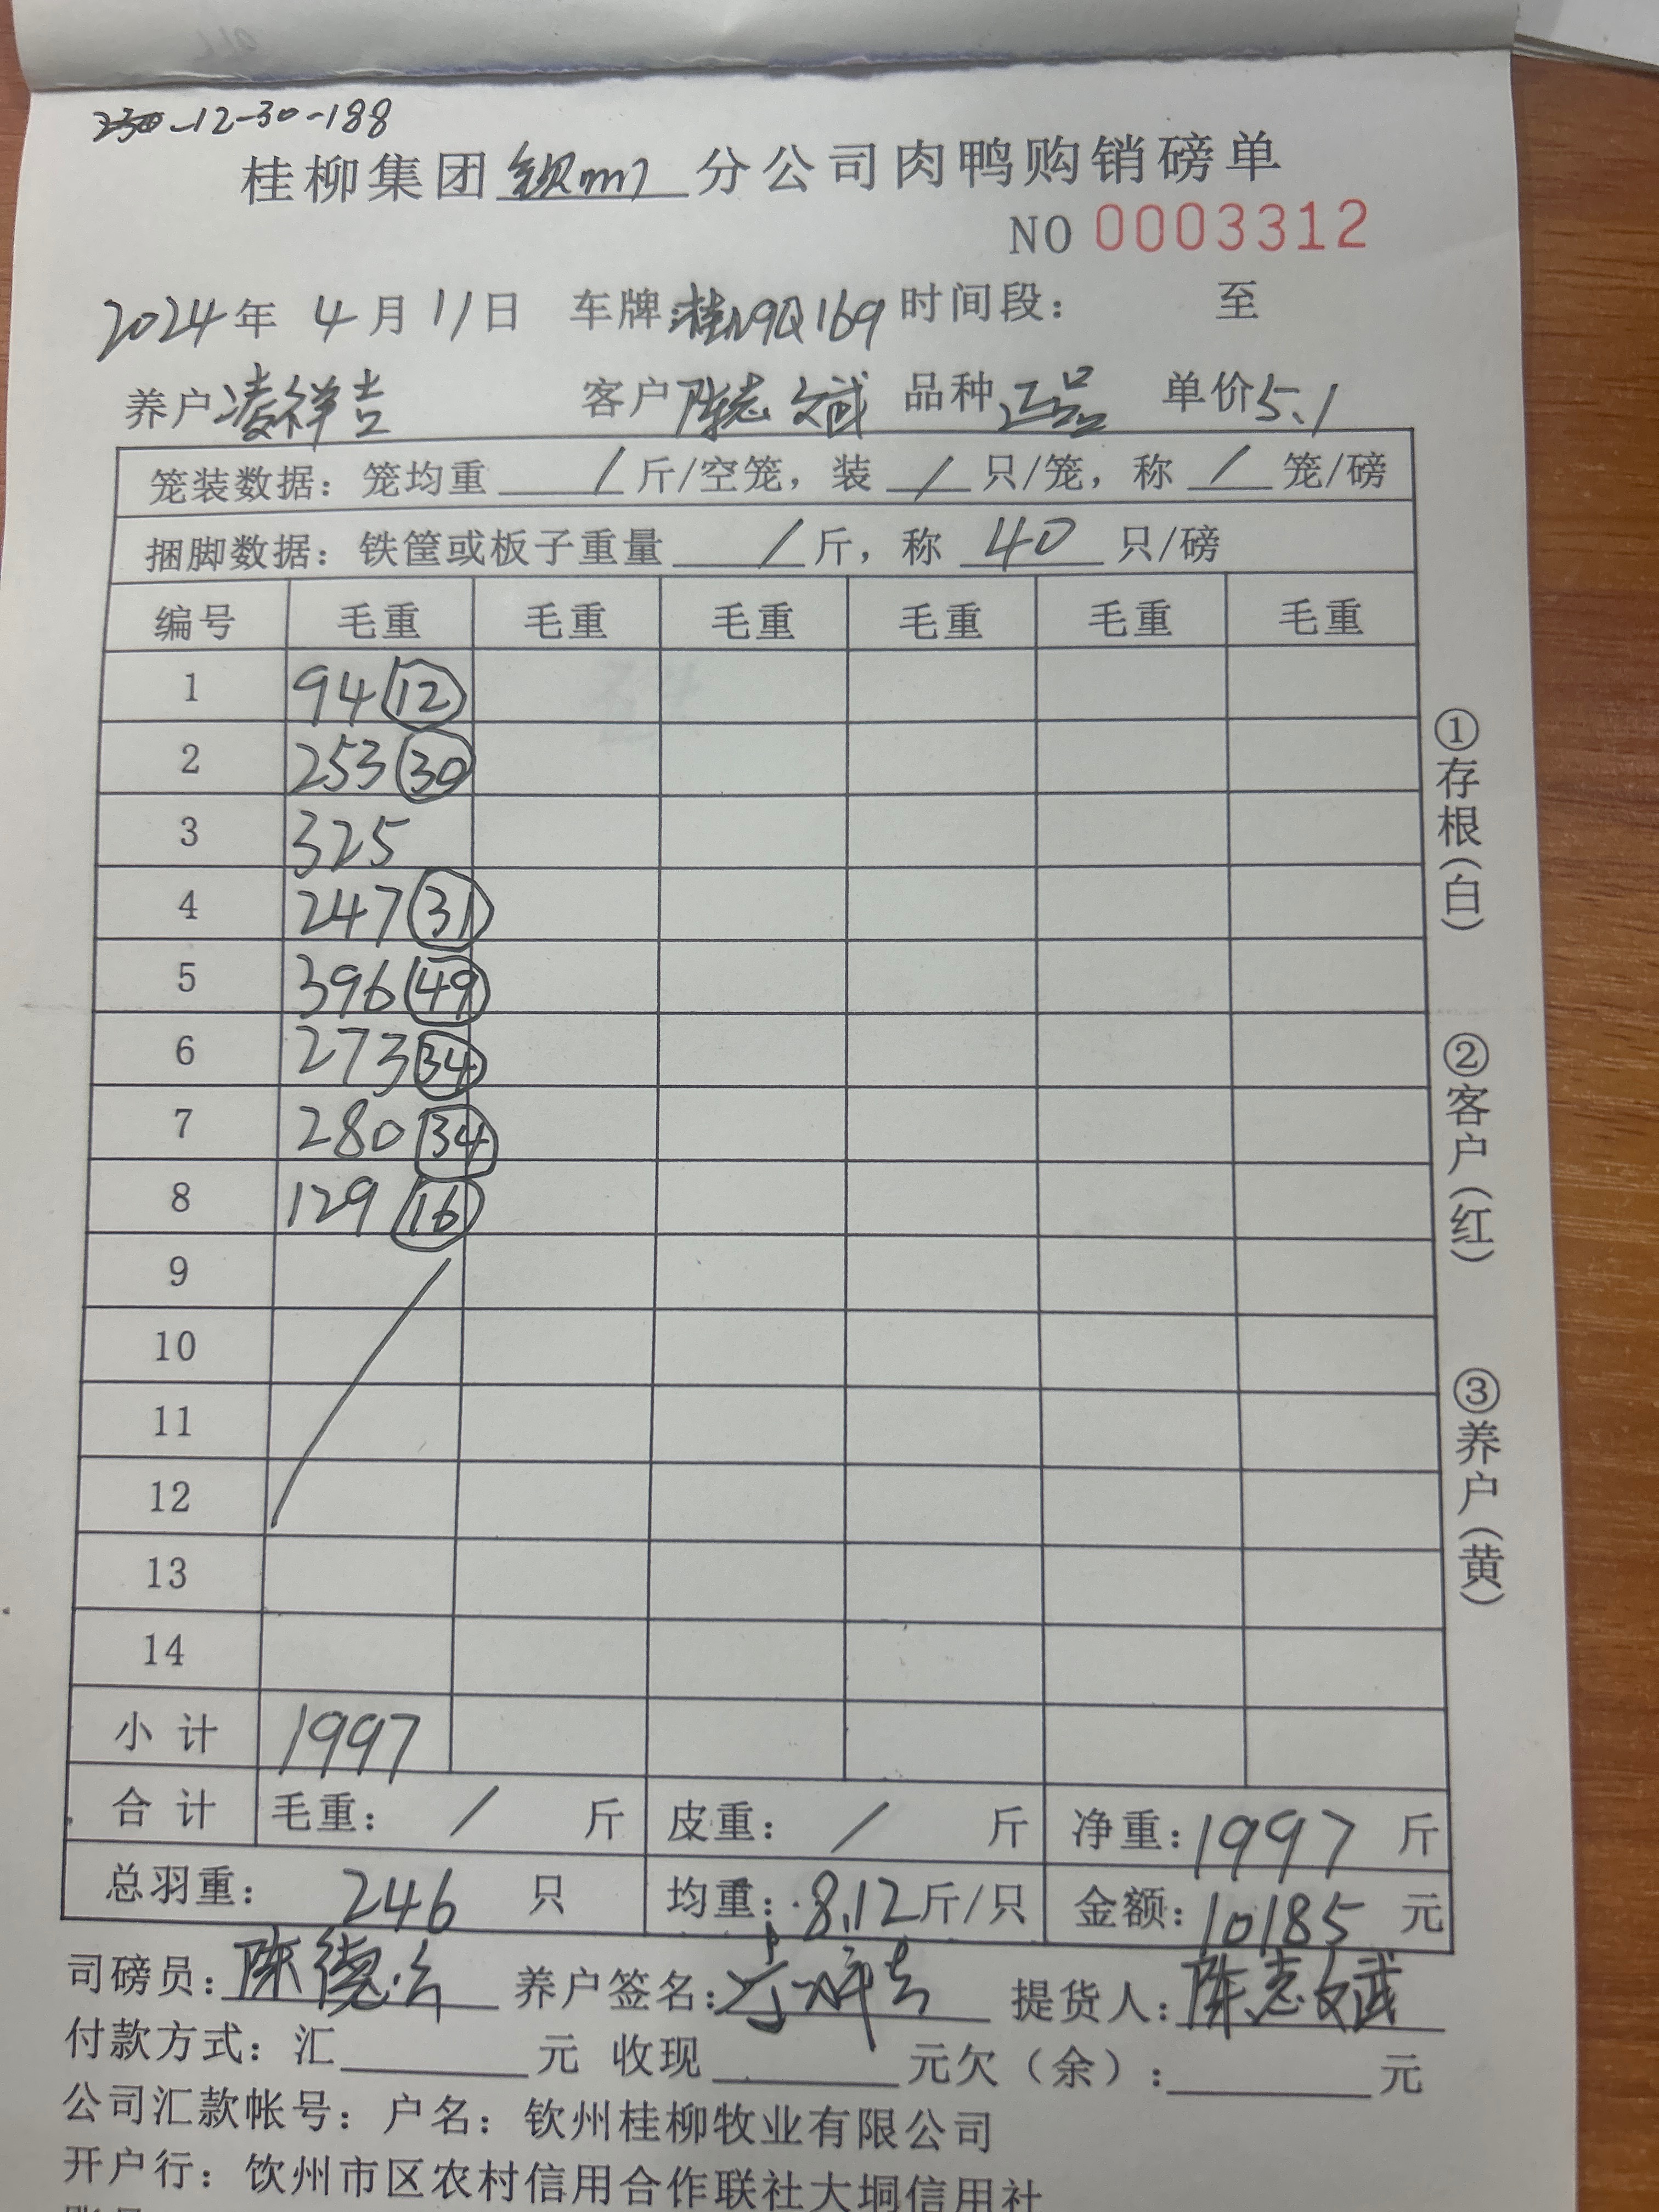 230-12-30-188
桂柳集团钦州分公司肉鸭购销磅单
NO 0003312
2024年 4月11日 车牌:桂N9Q169 时间段: 至
养户凌祥吉 客户陈志斌 品种正品 单价5.1
笼装数据:笼均重 / 斤/空笼,装 / 只/笼,称 / 笼/磅
捆脚数据:铁筐或板子重量 / 斤,称 40 只/磅
编号 毛重 毛重 毛重 毛重 毛重 毛重
1 94 12
2 253 30
3 325
4 247 31
5 396 49
6 273 34
7 280 34
8 129 16
9
10
11
12
13
14
小计 1997
合计 毛重: / 斤 皮重: / 斤 净重:1997 斤
总羽重: 246 只 均重:8.12斤/只 金额:10185 元
司磅员:陈德 养户签名:凌祥吉 提货人:陈志斌
付款方式:汇 元 收现 元欠(余): 元
公司汇款帐号:户名:钦州桂柳牧业有限公司
开户行:饮州市区农村信用合作联社大垌信用社
①存根(白)
②客户(红)
③养户(黄)